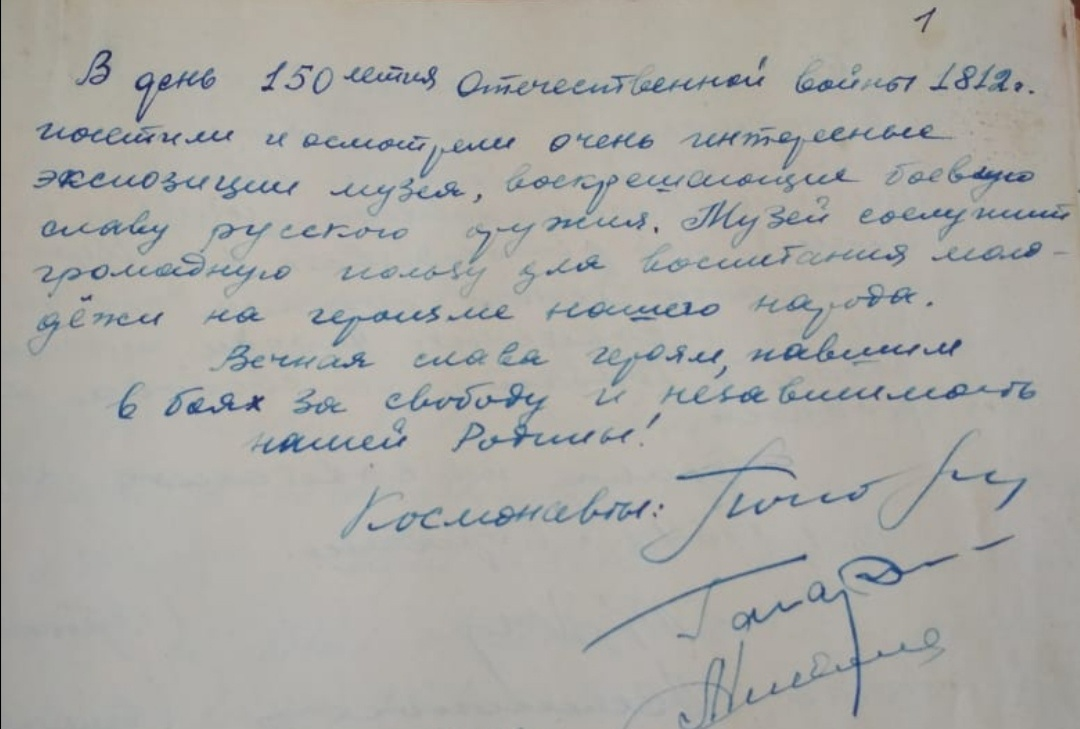 1
В день 150 летия Отечественной войны 1812г.
посетили и осмотрели очень интересные
экспозиции музея, воскрешающие боевую
славу русского оружия. Музей сослужит
громадную пользу для воспитания моло-
дёжи на героизме нашего народа.
Вечная слава героям, павшим
в боях за свободу и независимость
нашей Родины!
Космонавты: